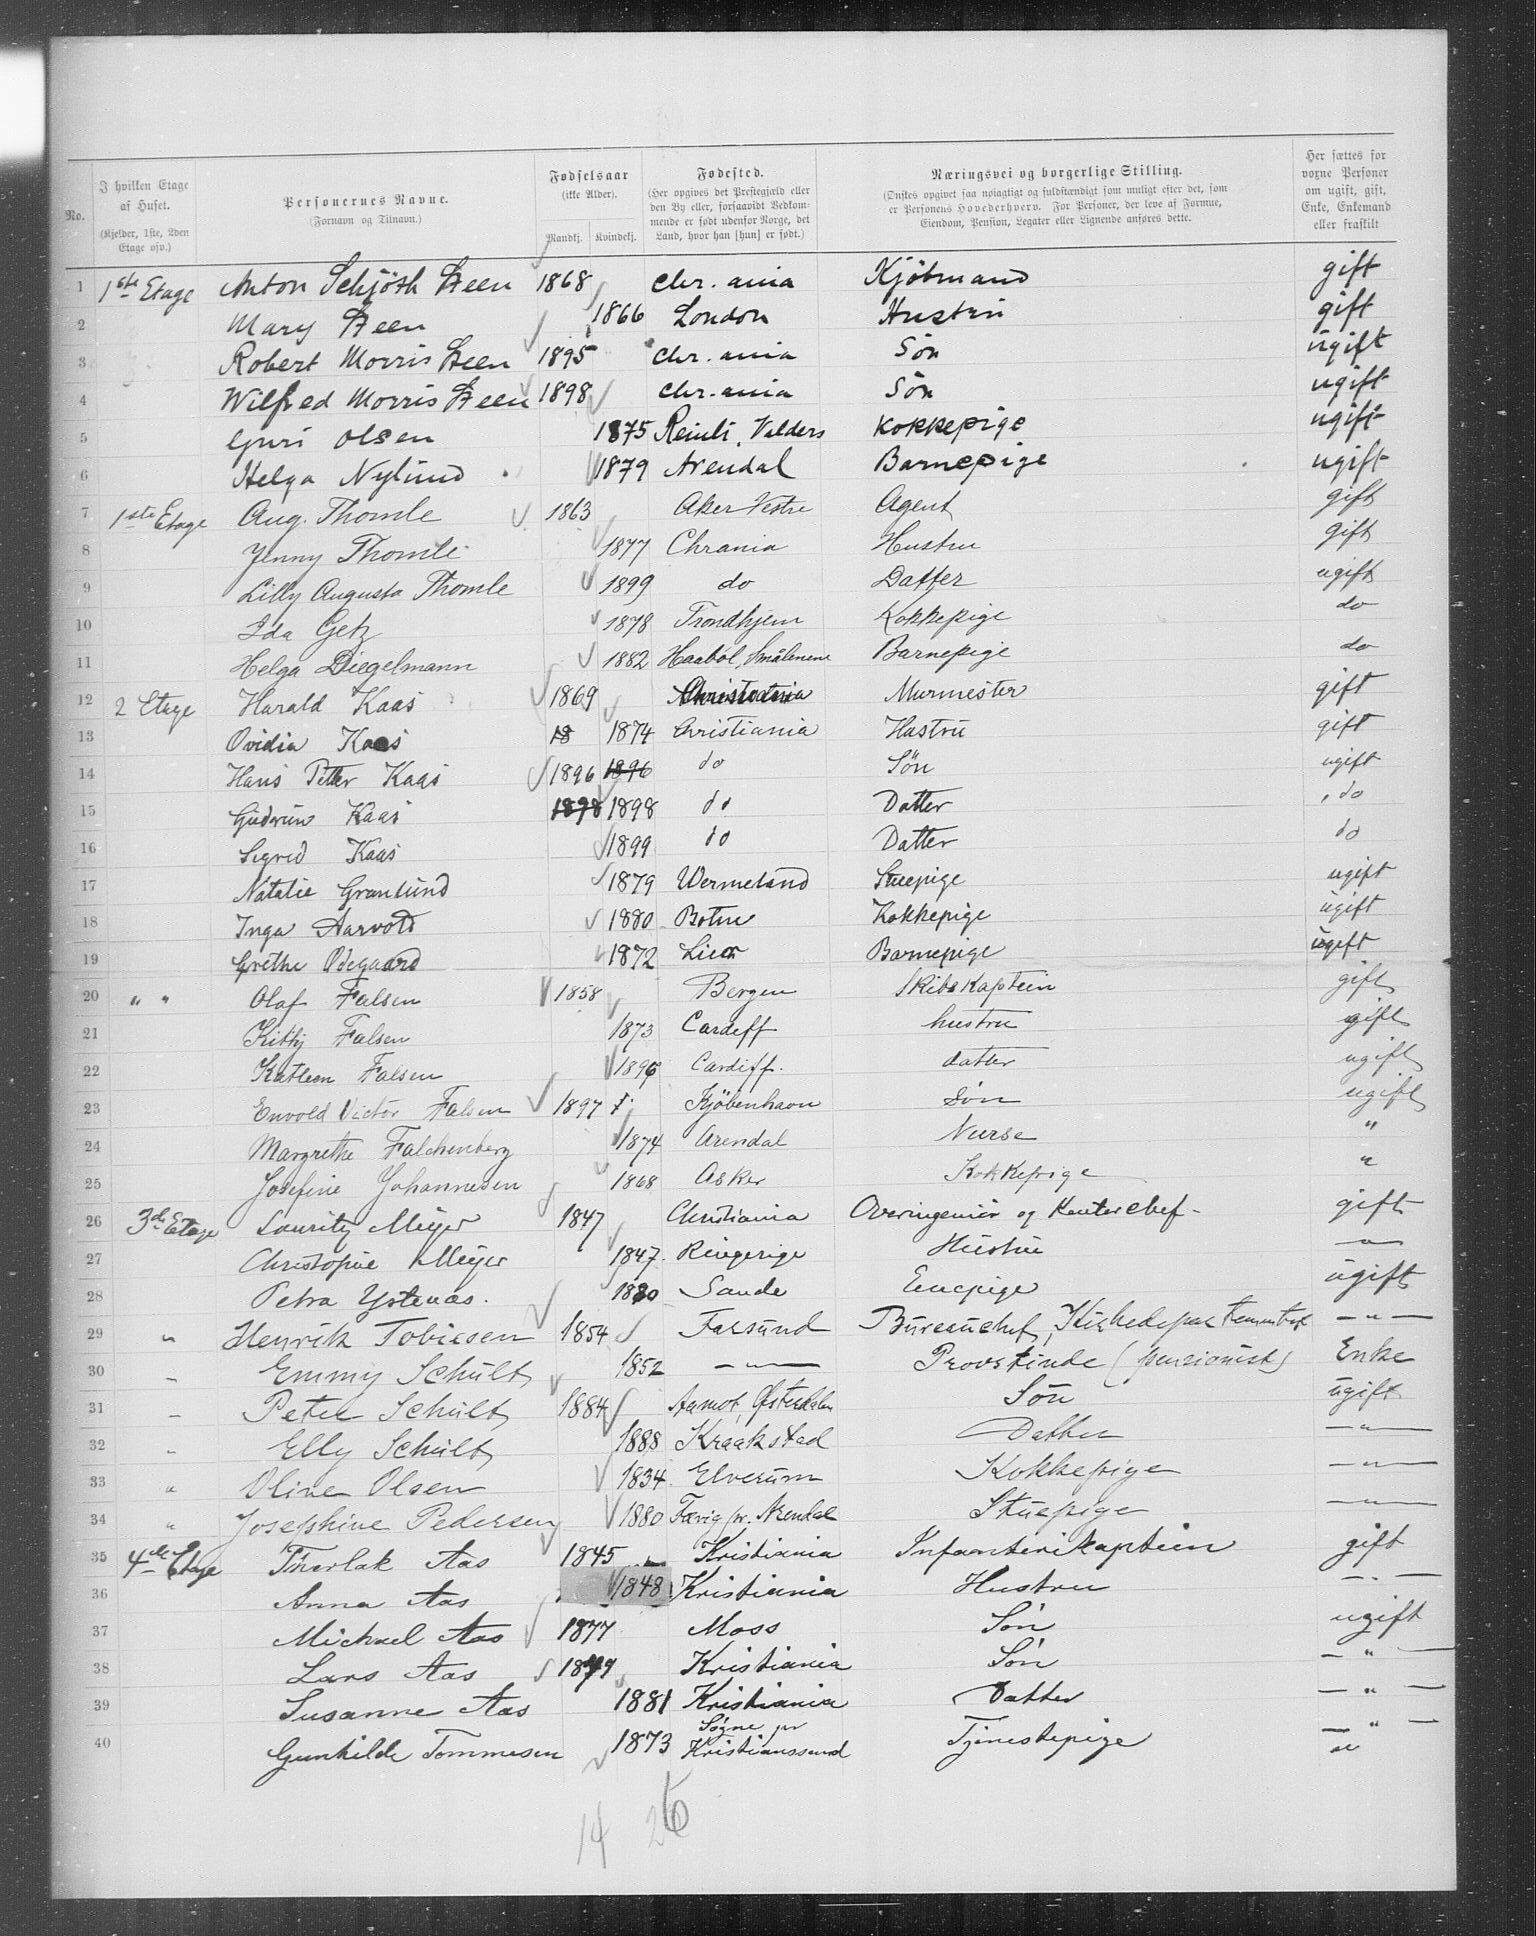 No.
I hvilken Etage af Huset. (Kjelder, 1ste, 2den Etage osv.)
Personernes Navne. (Fornavn og Tilnavn.)
Fødselsaar (ikke Alder). Mandkj. Kvindekj.
Fødested. (Her opgives det Prestegjæld eller den By eller, forsaavidt Vedkommende er født udenfor Norge, det Land, hvor han [hun] er født.)
Næringsvei og borgerlige Stilling. (Ønskes opgivet saa nøiagtigt og fuldstændigt som muligt efter det, som er Personens Hovederhverv. For Personer, der leve af Formue, Eiendom, Pension, Legater eller Lignende anføres dette.)
Her sættes for voxne Personer om ugift, gift, Enke, Enkemand eller fraskilt
1 1ste Etage Anton Schjöth Steen 1868 Chr.ania Kjöbmand gift
2 Mary Steen 1866 London Hustru gift
3 Robert Morris Steen 1895 Chr.ania Sön ugift
4 Wilfred Morris Steen 1898 Chr.ania Sön ugift
5 Guri Olsen 1875 Reinli, Valders Kokkepige ugift
6 Helga Nylund 1879 Arendal Barnepige ugift
7 1ste Etage Aug. Thomle 1863 Aker Vestre Agent gift
8 Jenny Thomle 1877 Chrania Hustru gift
9 Lilly Augusta Thomle 1899 do Datter ugift
10 Ida Getz 1878 Trondhjem Kokkepige do
11 Helga Diegelmann 1882 Haabøl, Smålenene Barnepige do
12 2 Etage Harald Kaas 1869 Christiania Murmester gift
13 Ovidia Kaas 18 1874 Christiania Hustru gift
14 Hans Petter Kaas 1896 1896 do Sön ugift
15 Gudrun Kaas 1898 1898 do Datter do
16 Sigrid Kaas 1899 do Datter do
17 Natalie Granlund 1879 Wermeland Stuepige ugift
18 Inga Aarvold 1880 Botne Kokkepige ugift
19 Grethe Ødegaard 1872 Lier Barnepige ugift
20 " " Olaf Falsen 1858 Bergen Skibskaptein gift
21 Kitty Falsen 1873 Cardiff hustru gift
22 Katleen Falsen 1896 Cardiff. datter ugift
23 Envold Victor Falsen 1897 Kjöbenhavn Sön ugift
24 Margrethe Falchenberg 1874 Arendal Nurse "
25 Josefine Johannesen 1868 Asker Kokkepige "
26 3die Etage Lauritz Meyer 1847 Christiania Overingeniör og Kontorchef - gift
27 Christopine Meyer 1847. Ringerige Hustru — " —
28 Petra Ystenæs. 1880 Sande Enepige ugift
29 " Henrik Tobiesen 1854 Farsund Bureauchef, Kirkedepartementet — " —
30 " Emmy Schult 1852 — " — Provstinde (pensionist) Enke
31 " Peter Schult 1884 Aamot, Østerdalen Sön ugift
32 " Elly Schult 1888 Kraakstad Datter — " —
33 " Oline Olsen 1834 Elverum Kokkepige — " —
34 " Josephine Pedersen 1880 Færvig pr. Arendal Stuepige — " —
35 4de Etage Thorlak Aas 1845 Kristiania Infanterikaptein gift
36 Anna Aas 1848 Kristiania Hustru — " —
37 Michael Aas 1877 Moss Sön ugift
38 Lars Aas 1879 Kristiania Sön — " —
39 Susanne Aas 1881 Kristiania Datter — " —
40 Gunhilde Tommesen 1873 Søgne pr Kristianssand Tjenestepige — " —
14 26